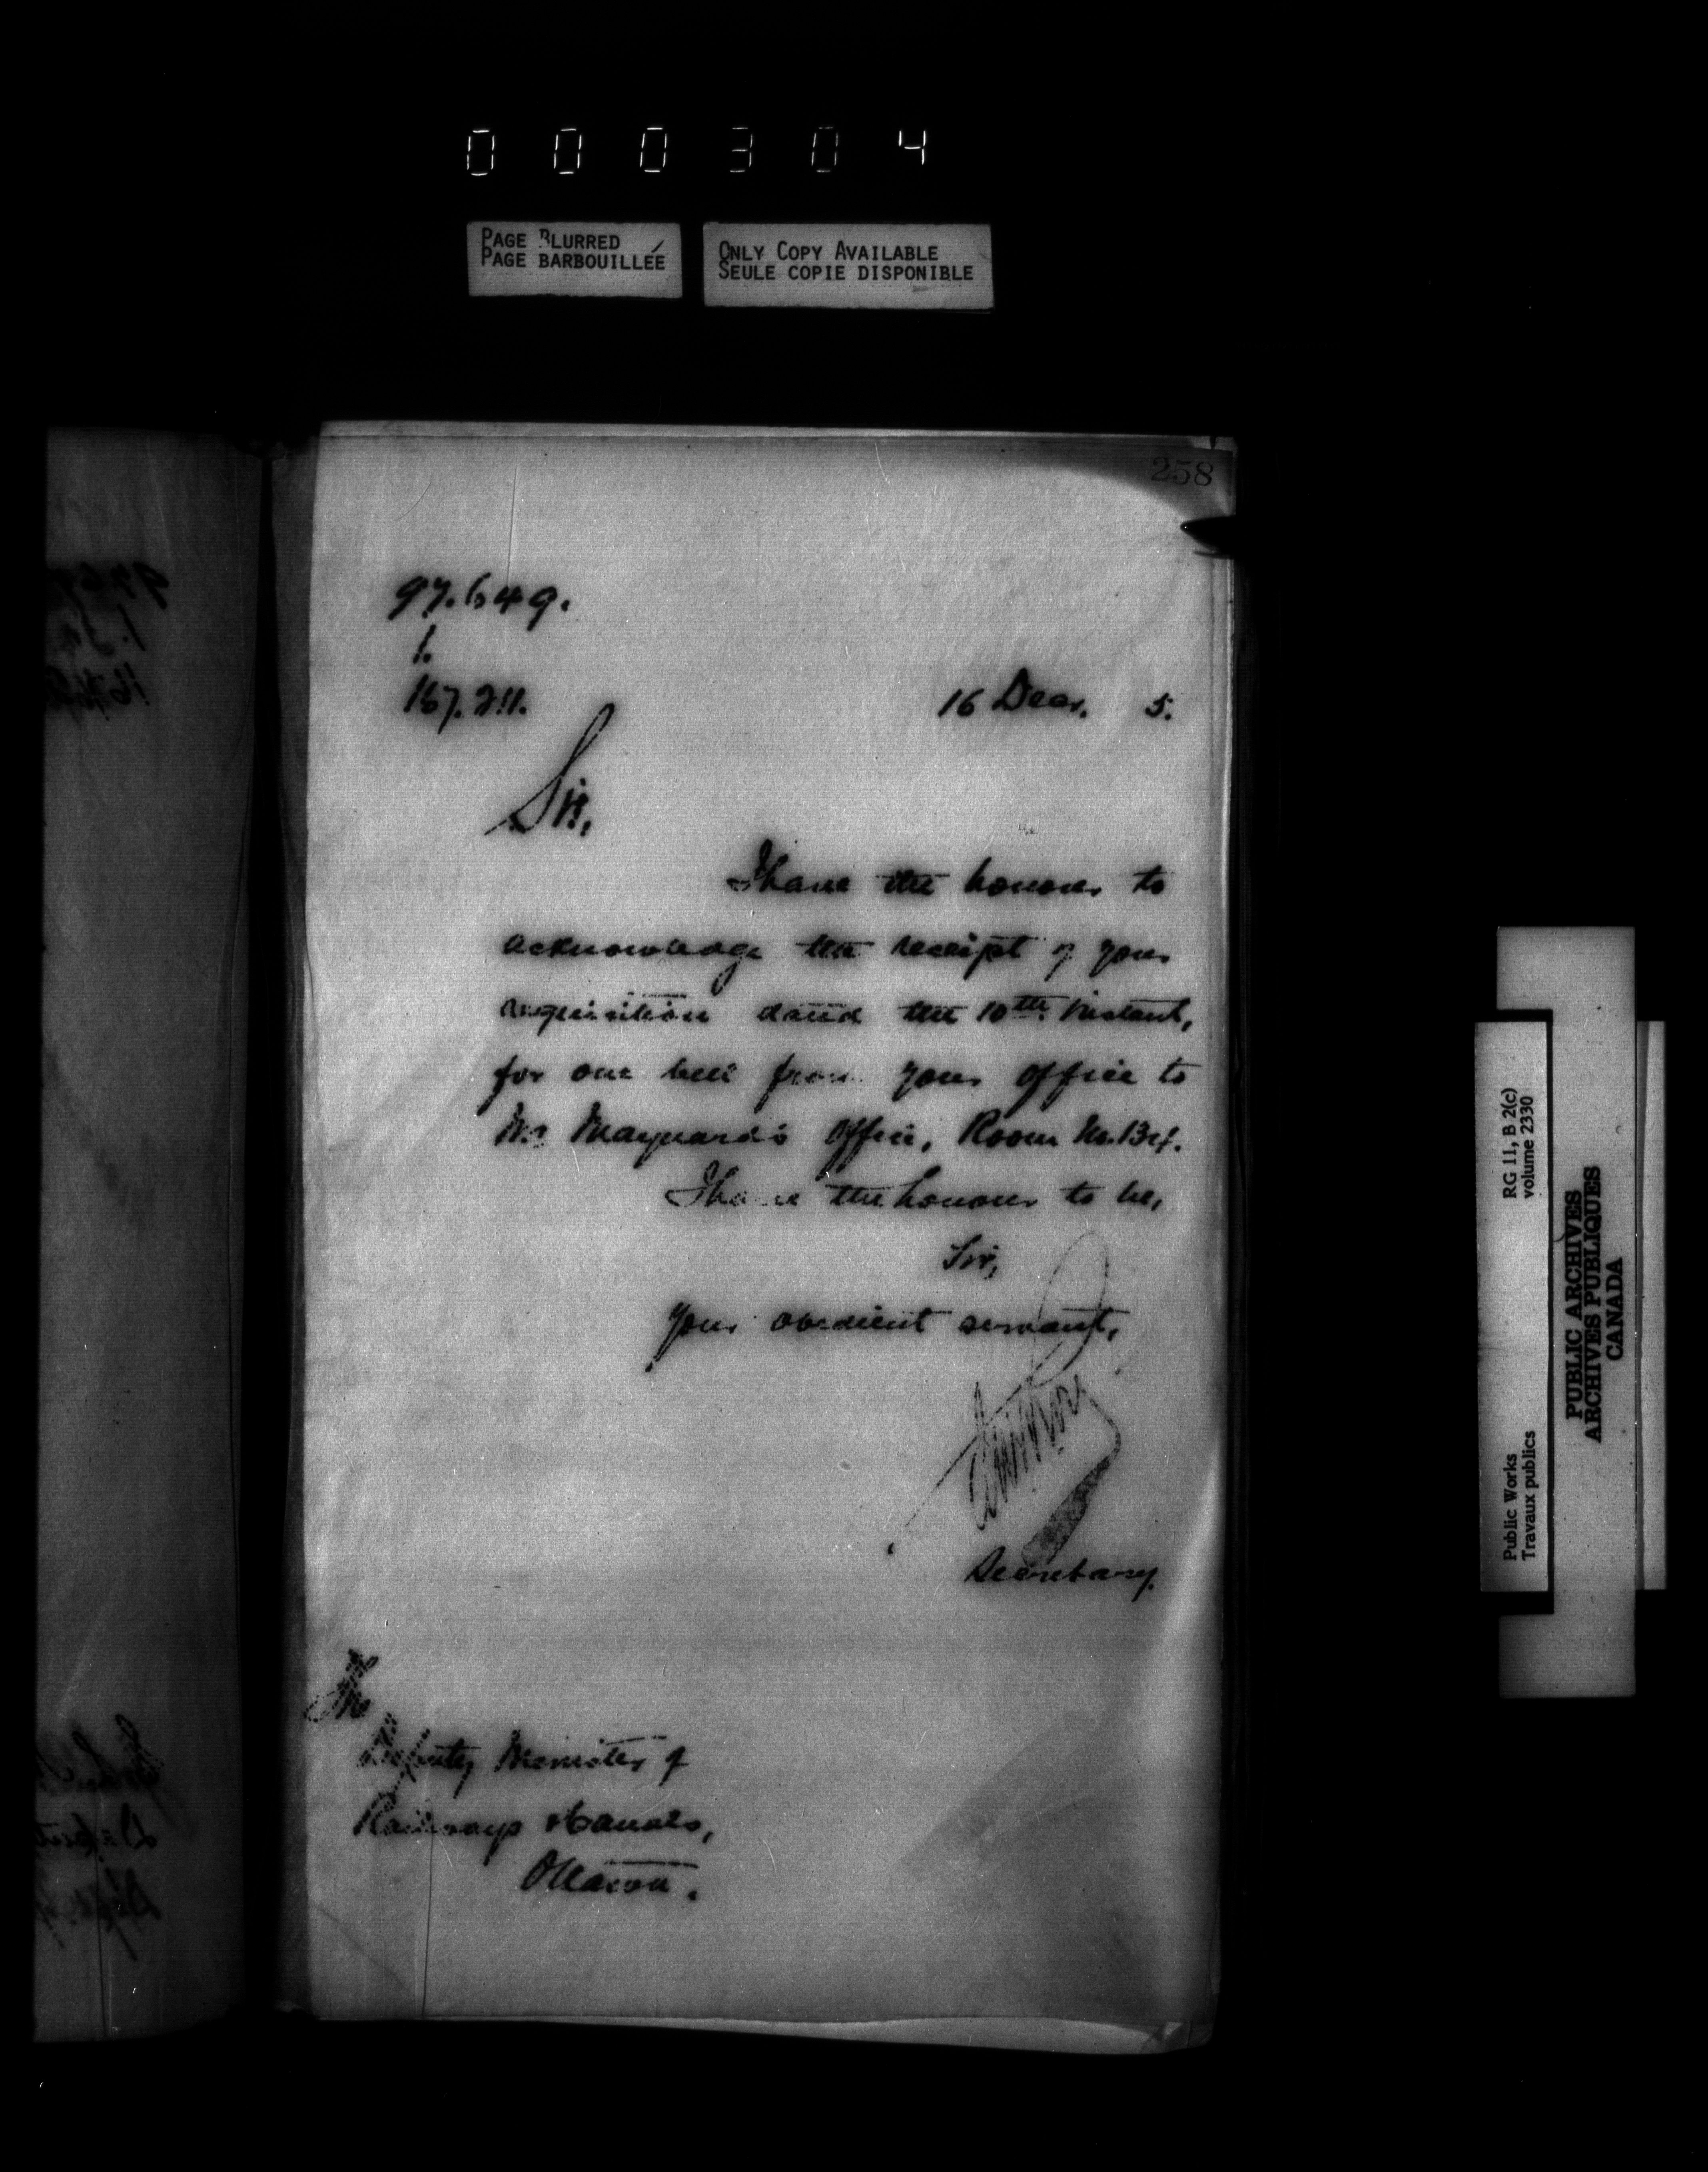 000304
PAGE BLURRED
PAGE BARBOUILLÉE
ONLY COPY AVAILABLE
SEULE COPIE DISPONIBLE
258
97.649.
1.
167.211.
16 Decr. 5.
Sir,
I have the honour to
acknowledge the receipt of your
requisition dated the 10th instant,
for one bell from your office to
Mr Maynard's office, Room No. 134.
I have the honour to be,
Sir,
Your obedient servant,
Secretary.
The
Deputy Minister of
Railways & Canals,
Ottawa.
RG 11, B 2(c)
volume 2330
Public Works
Travaux publics
PUBLIC ARCHIVES
ARCHIVES PUBLIQUES
CANADA